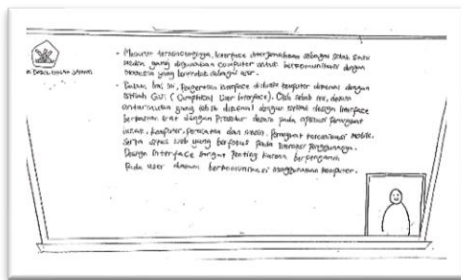 - Menurut terminologinya, Interface diterjemahkan sebagai salah satu
media yang digunakan computer untuk berkomunikasi dengan
manusia yang bertindak sebagai user.
- Dalam hal ini, pengertian interface didunia komputer dikenal dengan
istilah GUI (Graphical User Interface). Oleh sebab itu, desain
antarmuka yang lebih dikenal dengan istilah design Interface
berkaitan erat dengan Prosedur desain pada aplikasi perangkat
lunak, komputer, permainan dan mesin. Perangkat komunikasi mobile.
serta situs web yang berfokus pada transfer penggunanya.
Design Interface sangat Penting karena berpengaruh
Pada user dalam berkomunikasi menggunakan komputer.